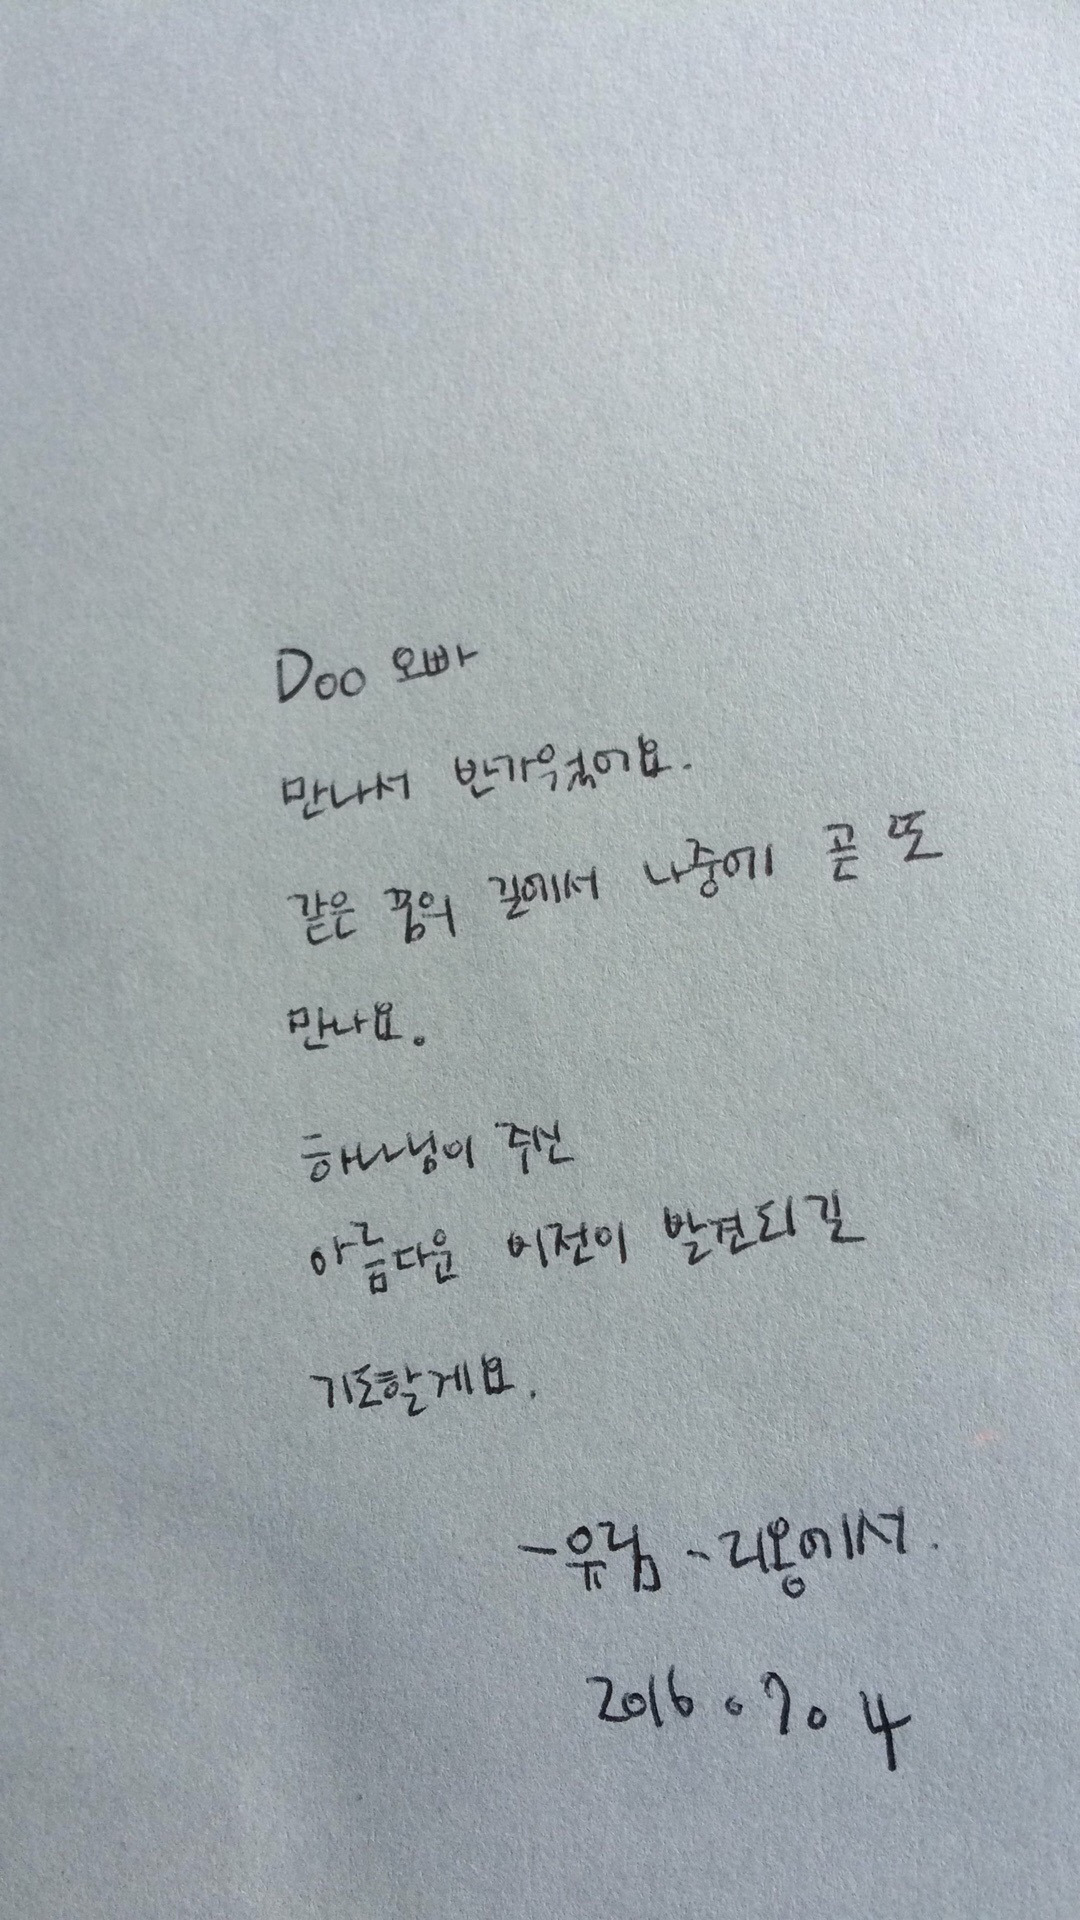 Doo 오빠
만나서 반가웠어요.
같은 꿈의 길에서 나중에 곧 또
만나요.
하나님이 주신
아름다운 비전이 발견되길
기도할게요.
-유림 - 리옹에서.
2016.7.4